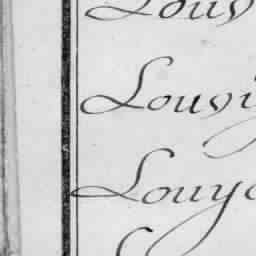 Louv
Louvi
Louy